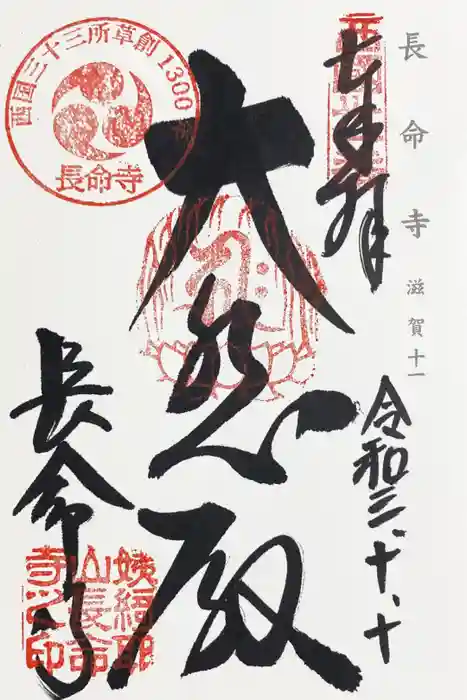 長命寺 滋賀十一
奉拝
令和三、十、十
大悲殿
長命寺
西国三十三所草創1300年
長命寺
姨綺耶
山長命
寺之印